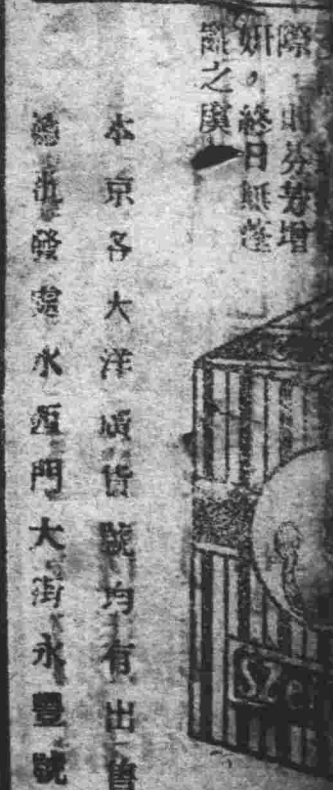 際,則芬芳增
妍,終日無蓬
亂之虞
本京各大洋廣貨號均有出售
總批發處水西門大街永豐號